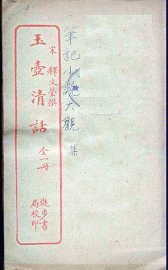 筆記小說大觀 集
宋 釋文瑩撰
玉壺清話 全一冊
進步書
局校印